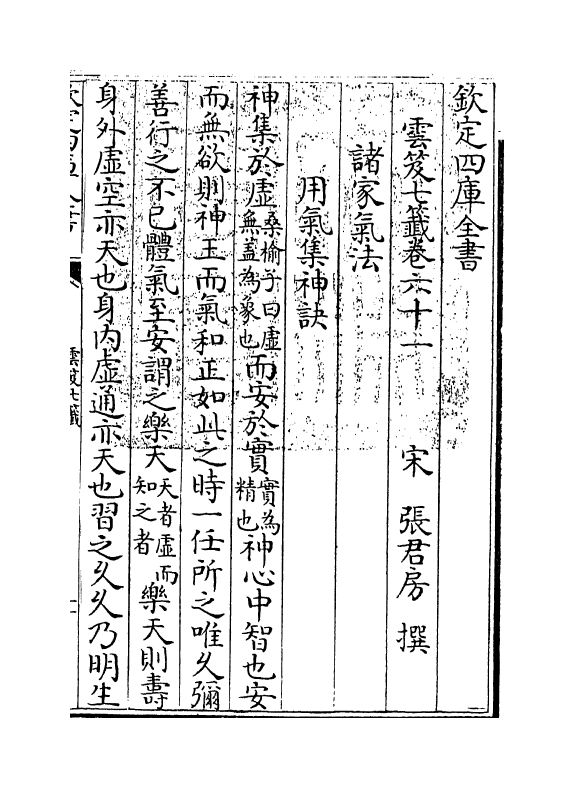 欽定四庫全書
雲笈七籖卷六十一 宋 張君房 撰
諸家氣法
用氣集神訣
神集於虛桑榆子曰虛無蓋為象也而安於實實為精也神心中智也安
而無欲則神王而氣和正如此之時一任所之唯久彌
善行之不已體氣至安謂之樂天天者虛而知之者樂天則壽
身外虛空亦天也身内虛通亦天也習之久久乃明生
雲笈七籖